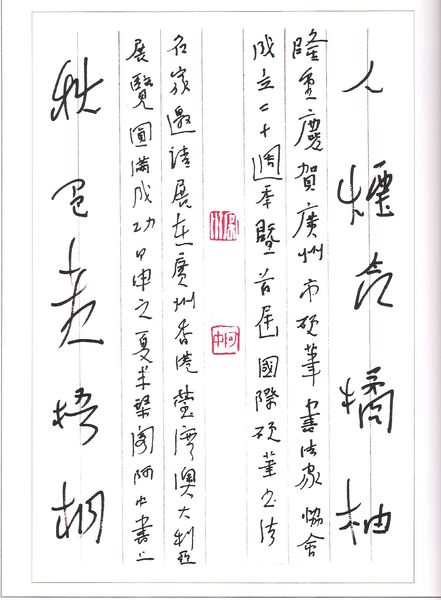 人煙寒橘柚
隆重慶賀廣州市硬筆書法家協會
成立二十週年暨首屆國際硬筆書法
阿中
名家邀請展在廣州香港臺灣澳大利亞
展覽圓滿成功甲申之夏求琴閣阿中書上
秋色老梧桐